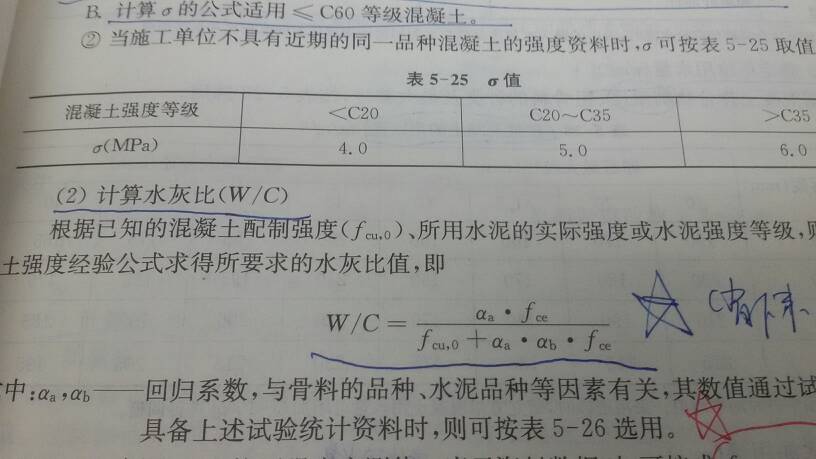 B. 计算σ的公式适用≤C60等级混凝土。
② 当施工单位不具有近期的同一品种混凝土的强度资料时,σ可按表5-25取值
表 5-25 σ值
混凝土强度等级 <C20 C20～C35 >C35
σ(MPa) 4.0 5.0 6.0
(2) 计算水灰比(W/C)
根据已知的混凝土配制强度(f_cu,0)、所用水泥的实际强度或水泥强度等级,则
土强度经验公式求得所要求的水灰比值,即
W/C = (α_a · f_ce) / (f_cu,0 + α_a · α_b · f_ce)
中:α_a,α_b——回归系数,与骨料的品种、水泥品种等因素有关,其数值通过试
具备上述试验统计资料时,则可按表 5-26 选用。